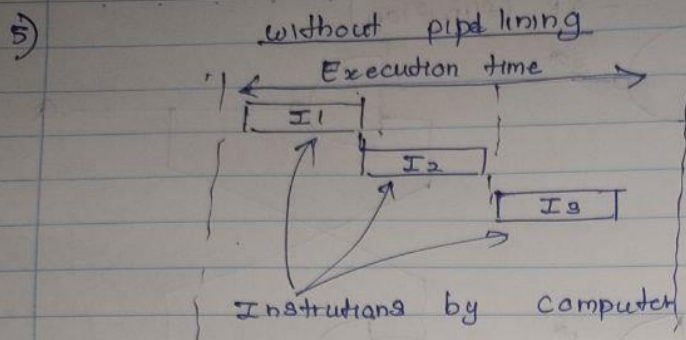 5)
without pipd lining
Execution time
I1
I2
I3
Instrutians by computer